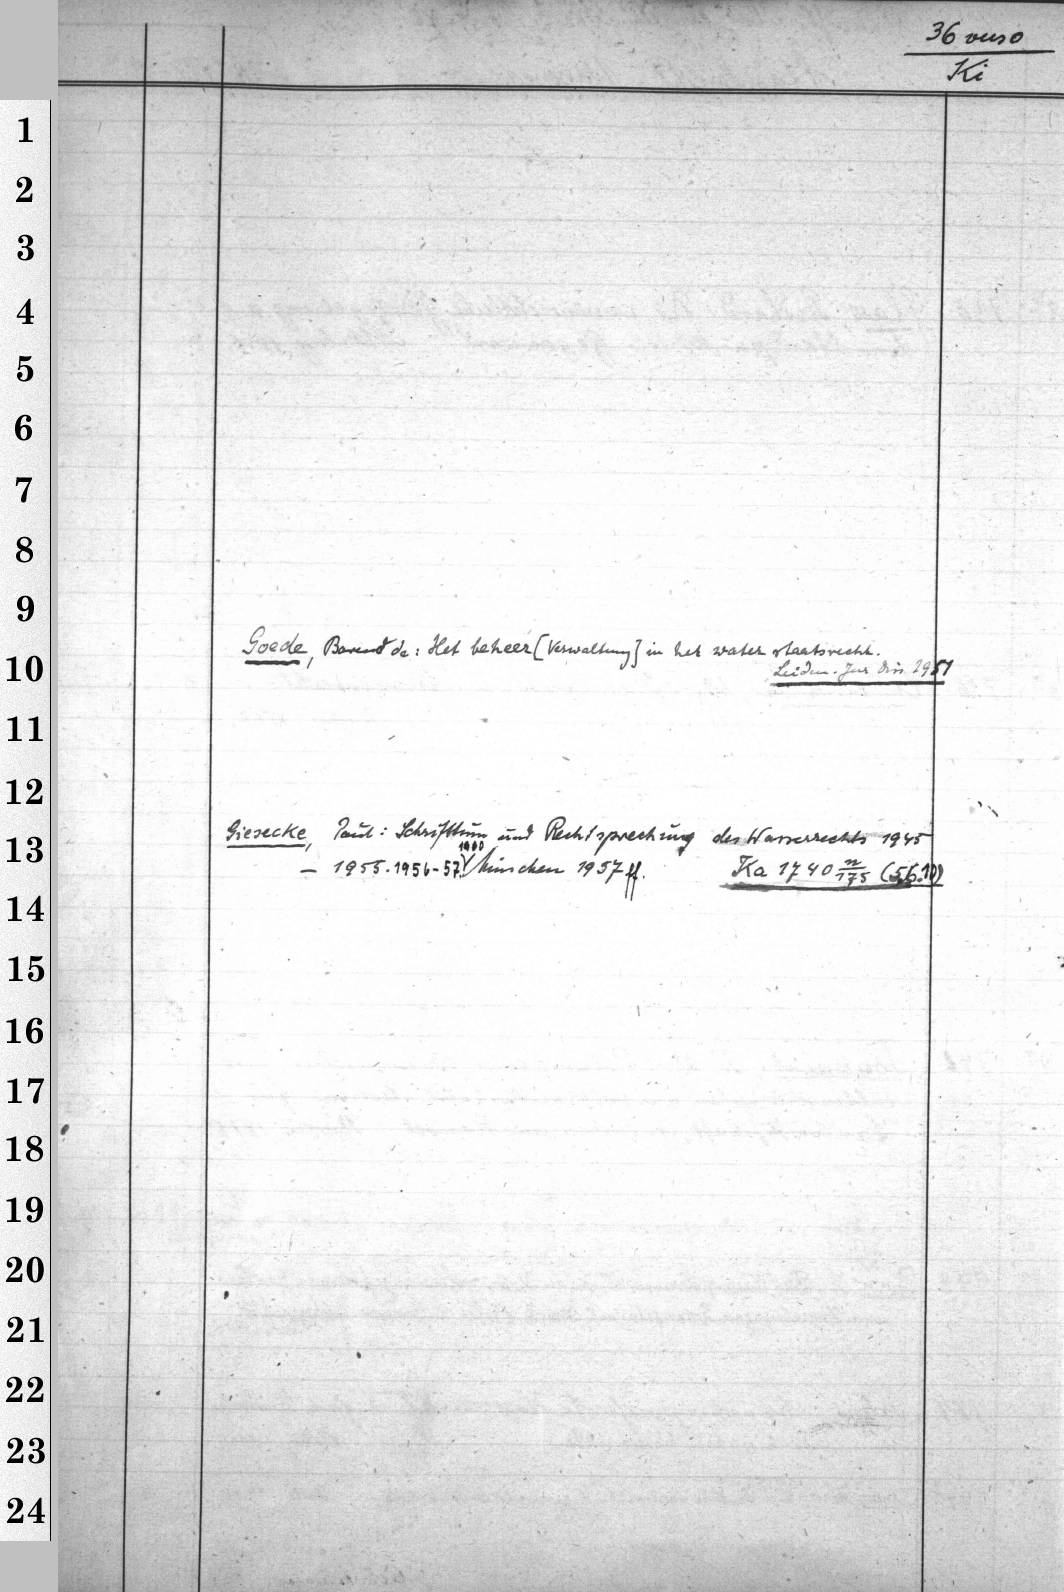 36 verso
Ki
1
2
3
4
5
6
7
8
9
Goede, Barend de: Het beheer [Verwaltung] in het water staatsrecht.
10
Leiden. Jur Diss. 1951
11
12
Giesecke, Paul: Schrifttum und Rechtsprechung des Wasserrechts 1945
13
1900
— 1955. 1956-57. München 1957 ff. Ka 1740 n/175 (5.6.10)
14
15
16
17
18
19
20
21
22
23
24